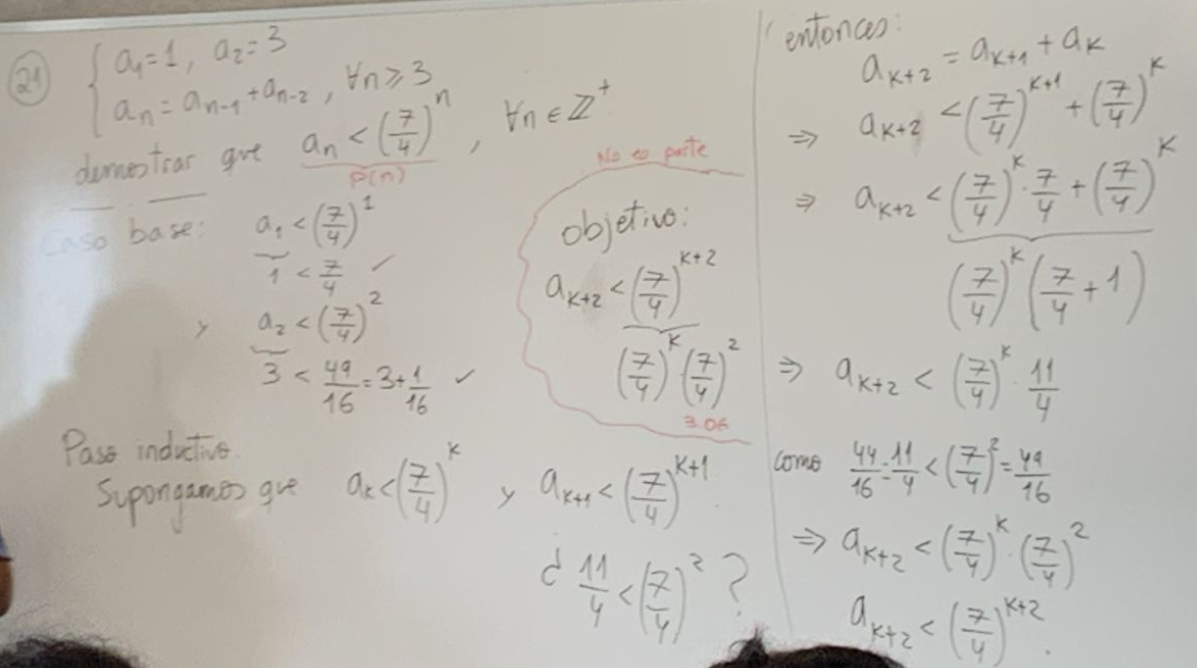 21
{ a₁=1, a₂=3
aₙ = aₙ₋₁ + aₙ₋₂, ∀n ≥ 3
demostrar que aₙ < (7/4)ⁿ, ∀n ∈ ℤ⁺
P(n)
Caso base: a₁ < (7/4)¹
1 < 7/4 ✓
y a₂ < (7/4)²
3 < 49/16 = 3 + 1/16 ✓
No es parte
objetivo:
aₖ₊₂ < (7/4)ᵏ⁺²
(7/4)ᵏ (7/4)²
3.06
Paso inductivo.
Supongamos que aₖ < (7/4)ᵏ y aₖ₊₁ < (7/4)ᵏ⁺¹.
¿ 11/4 < (7/4)² ?
entonces:
aₖ₊₂ = aₖ₊₁ + aₖ
⇒ aₖ₊₂ < (7/4)ᵏ⁺¹ + (7/4)ᵏ
⇒ aₖ₊₂ < (7/4)ᵏ · 7/4 + (7/4)ᵏ
(7/4)ᵏ (7/4 + 1)
⇒ aₖ₊₂ < (7/4)ᵏ · 11/4
como 44/16 = 11/4 < (7/4)² = 49/16
⇒ aₖ₊₂ < (7/4)ᵏ · (7/4)²
aₖ₊₂ < (7/4)ᵏ⁺².